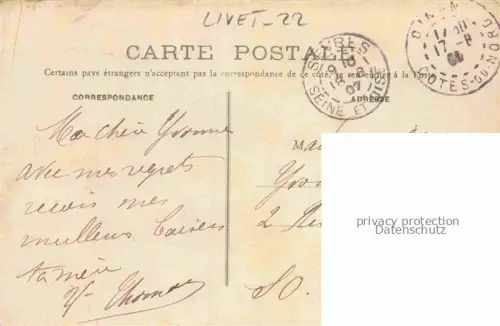 LIVET-22
CARTE POSTALE
Certains pays étrangers n'acceptant pas la correspondance de ce côté, se renseigner à la Poste
CORRESPONDANCE
ADRESSE
SÈVRES
SEINE ET OISE
DINAN
CÔTES-DU-NORD
Ma chère Yvonne
avec mes regrets
reçois mes
meilleurs baisers
ta mère
Yvonne
2 Rue
privacy protection
Datenschutz